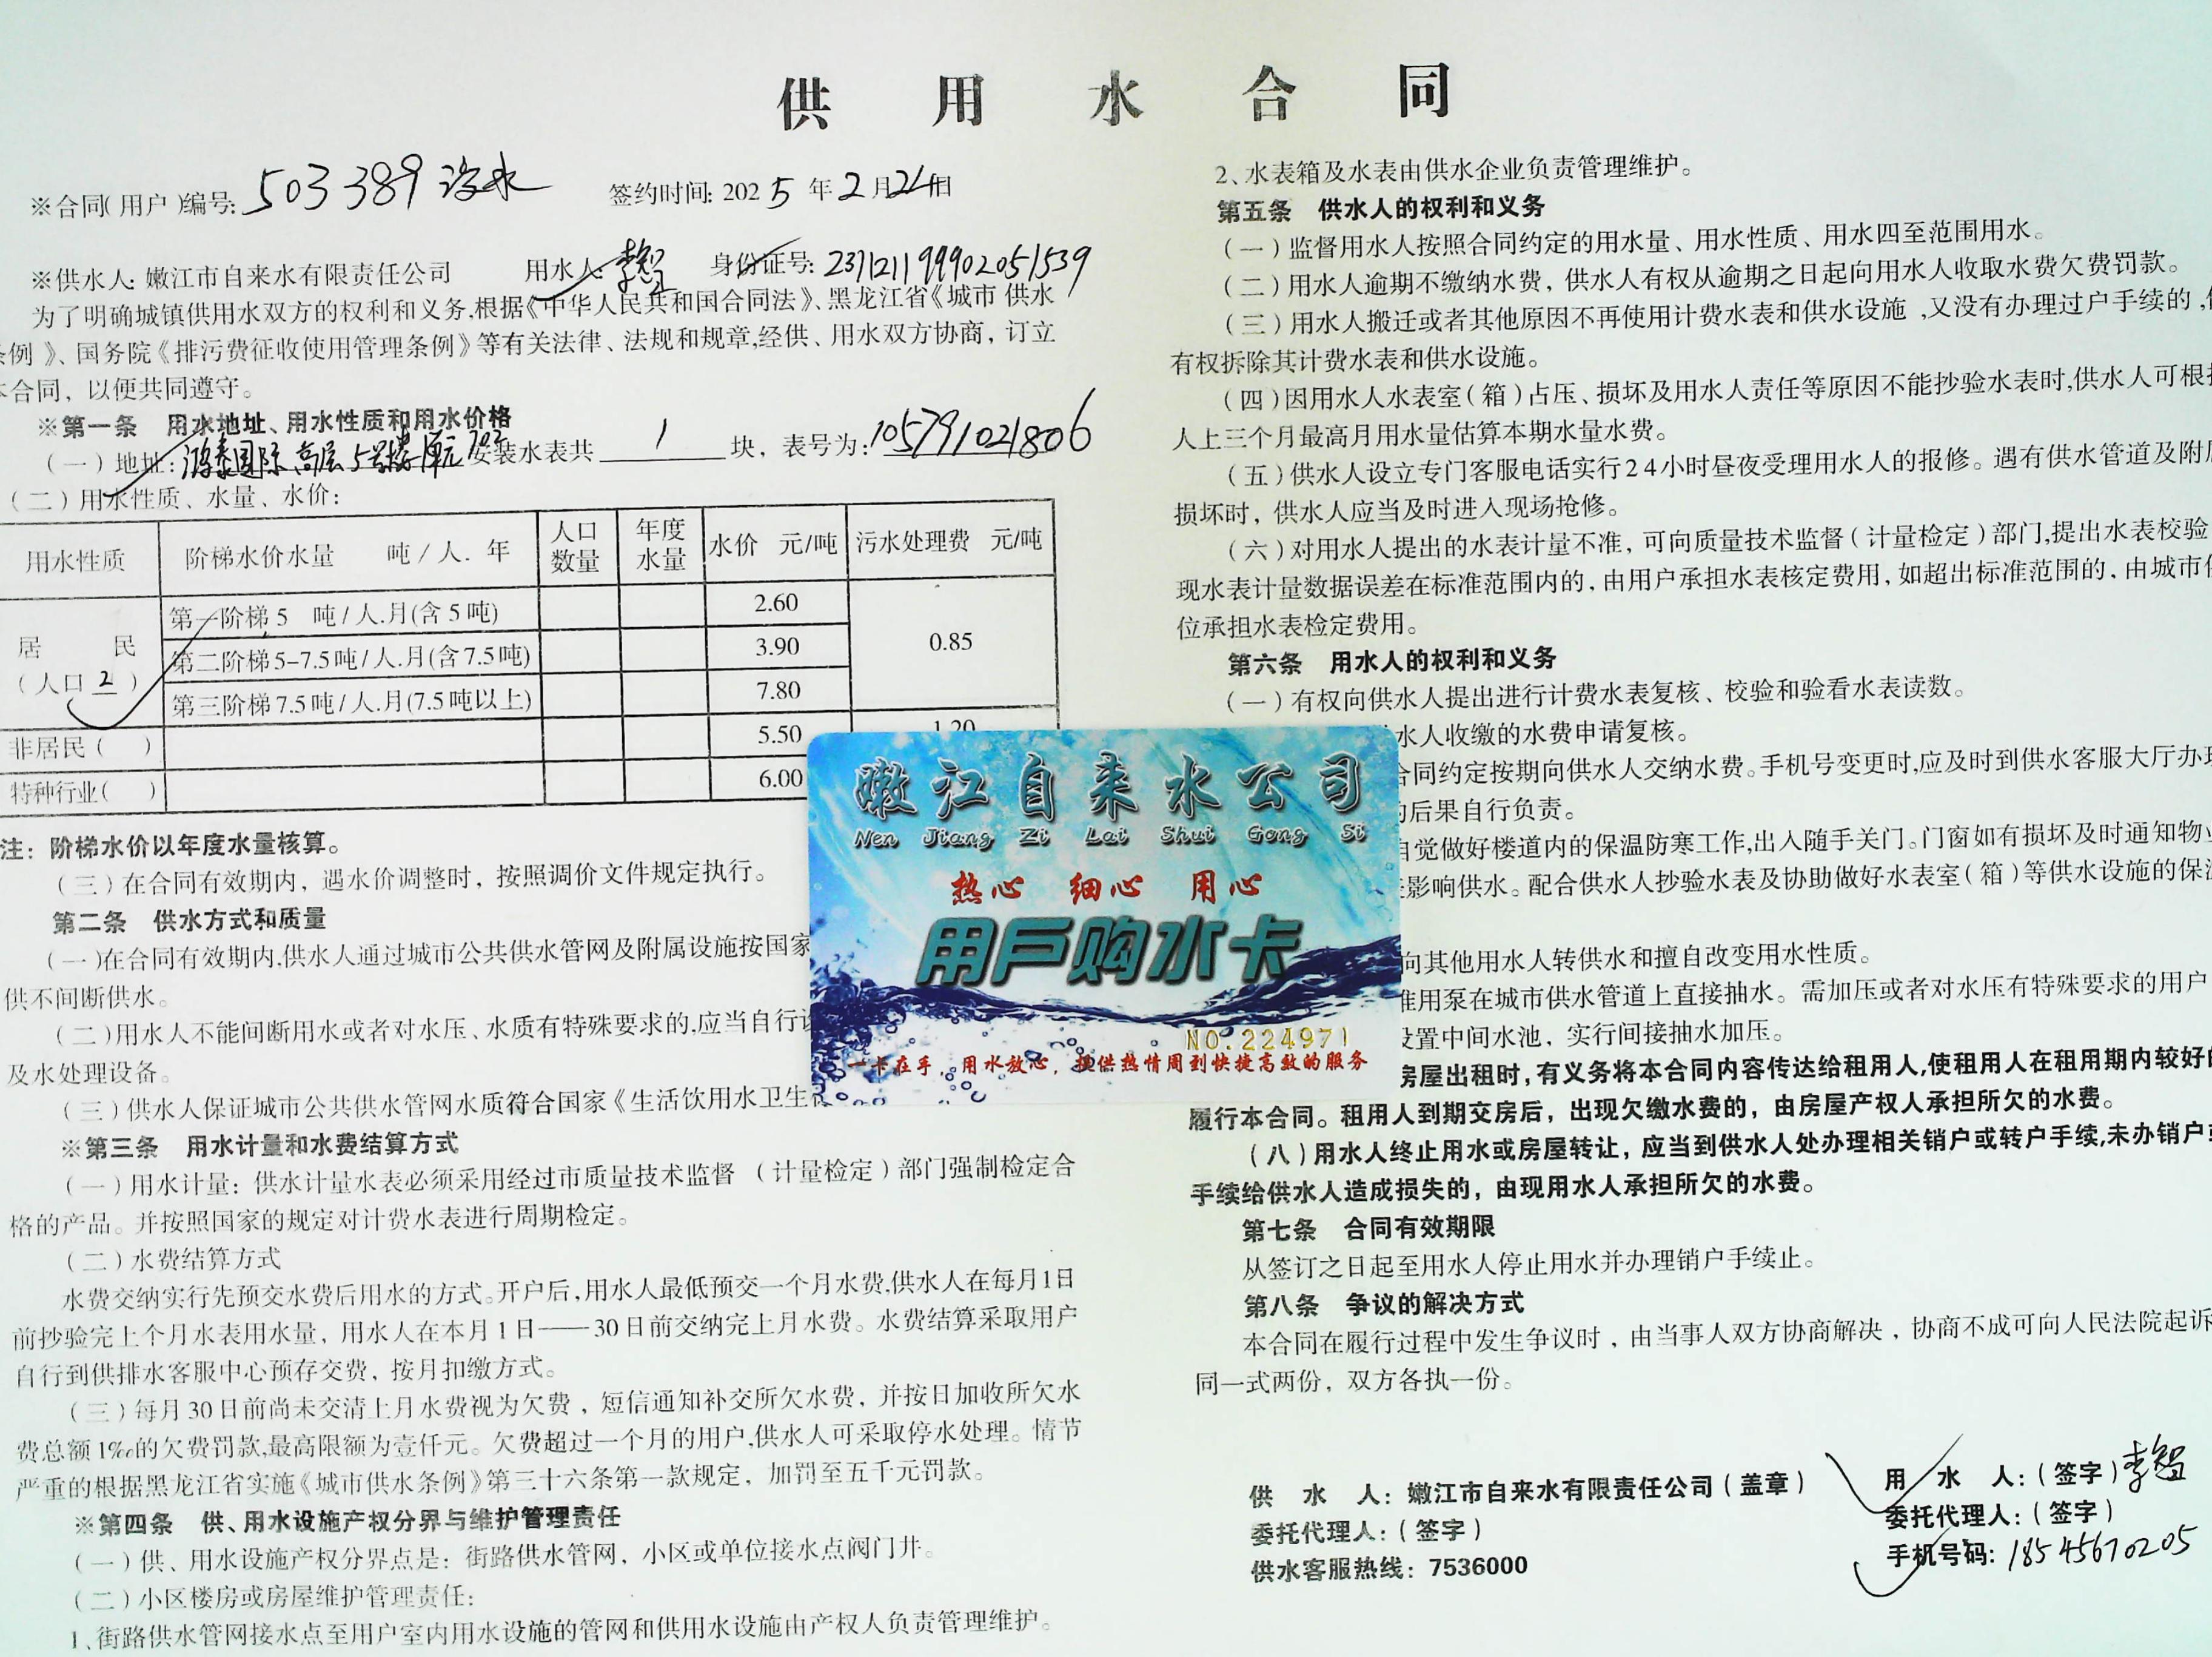 供 用 水 合 同
※合同(用户)编号: 503389 冷水 签约时间: 2025年2月24日
※供水人: 嫩江市自来水有限责任公司 用水人: 李智 身份证号: 237121199902051539
为了明确城镇供用水双方的权利和义务,根据《中华人民共和国合同法》、黑龙江省《城市 供水
条例》、国务院《排污费征收使用管理条例》等有关法律、法规和规章,经供、用水双方协商，订立
本合同，以便共同遵守。
※第一条 用水地址、用水性质和用水价格
(一)地址: 鸿泰国际高层5号楼1单元702 安装水表共 1 块，表号为: 105791021806
(二)用水性质、水量、水价:
用水性质 阶梯水价水量 吨/人.年 人口数量 年度水量 水价 元/吨 污水处理费 元/吨
居 民 (人口 2 )
第一阶梯 5 吨/人.月(含5吨) 2.60 0.85
第二阶梯5-7.5吨/人.月(含7.5吨) 3.90
第三阶梯7.5吨/人.月(7.5吨以上) 7.80
非居民( ) 5.50 1.20
特种行业( ) 6.00
注：阶梯水价以年度水量核算。
(三)在合同有效期内，遇水价调整时，按照调价文件规定执行。
第二条 供水方式和质量
(一)在合同有效期内,供水人通过城市公共供水管网及附属设施按国家
供不间断供水。
(二)用水人不能间断用水或者对水压、水质有特殊要求的,应当自行设
及水处理设备。
(三)供水人保证城市公共供水管网水质符合国家《生活饮用水卫生
※第三条 用水计量和水费结算方式
(一)用水计量：供水计量水表必须采用经过市质量技术监督 (计量检定)部门强制检定合
格的产品。并按照国家的规定对计费水表进行周期检定。
(二)水费结算方式
水费交纳实行先预交水费后用水的方式。开户后,用水人最低预交一个月水费,供水人在每月1日
前抄验完上个月水表用水量，用水人在本月1日——30日前交纳完上月水费。水费结算采取用户
自行到供排水客服中心预存交费，按月扣缴方式。
(三)每月30日前尚未交清上月水费视为欠费，短信通知补交所欠水费，并按日加收所欠水
费总额1‰的欠费罚款,最高限额为壹仟元。欠费超过一个月的用户,供水人可采取停水处理。情节
严重的根据黑龙江省实施《城市供水条例》第三十六条第一款规定，加罚至五千元罚款。
※第四条 供、用水设施产权分界与维护管理责任
(一)供、用水设施产权分界点是：街路供水管网，小区或单位接水点阀门井。
(二)小区楼房或房屋维护管理责任:
1、街路供水管网接水点至用户室内用水设施的管网和供用水设施由产权人负责管理维护。
2、水表箱及水表由供水企业负责管理维护。
第五条 供水人的权利和义务
(一)监督用水人按照合同约定的用水量、用水性质、用水四至范围用水。
(二)用水人逾期不缴纳水费，供水人有权从逾期之日起向用水人收取水费欠费罚款。
(三)用水人搬迁或者其他原因不再使用计费水表和供水设施,又没有办理过户手续的,
有权拆除其计费水表和供水设施。
(四)因用水人水表室(箱)占压、损坏及用水人责任等原因不能抄验水表时,供水人可根据
人上三个月最高月用水量估算本期水量水费。
(五)供水人设立专门客服电话实行24小时昼夜受理用水人的报修。遇有供水管道及附属
损坏时，供水人应当及时进入现场抢修。
(六)对用水人提出的水表计量不准，可向质量技术监督(计量检定)部门,提出水表校验
现水表计量数据误差在标准范围内的，由用户承担水表核定费用，如超出标准范围的，由城市供
位承担水表检定费用。
第六条 用水人的权利和义务
(一)有权向供水人提出进行计费水表复核、校验和验看水表读数。
水人收缴的水费申请复核。
合同约定按期向供水人交纳水费。手机号变更时,应及时到供水客服大厅办理
的后果自行负责。
自觉做好楼道内的保温防寒工作,出入随手关门。门窗如有损坏及时通知物业
影响供水。配合供水人抄验水表及协助做好水表室(箱)等供水设施的保温
向其他用水人转供水和擅自改变用水性质。
准用泵在城市供水管道上直接抽水。需加压或者对水压有特殊要求的用户
设置中间水池，实行间接抽水加压。
房屋出租时，有义务将本合同内容传达给租用人,使租用人在租用期内较好的
履行本合同。租用人到期交房后，出现欠缴水费的，由房屋产权人承担所欠的水费。
(八)用水人终止用水或房屋转让，应当到供水人处办理相关销户或转户手续,未办销户或
手续给供水人造成损失的，由现用水人承担所欠的水费。
第七条 合同有效期限
从签订之日起至用水人停止用水并办理销户手续止。
第八条 争议的解决方式
本合同在履行过程中发生争议时，由当事人双方协商解决，协商不成可向人民法院起诉
同一式两份，双方各执一份。
供 水 人：嫩江市自来水有限责任公司(盖章)
委托代理人：(签字)
供水客服热线：7536000
用 水 人：(签字)李智
委托代理人：(签字)
手机号码：18545670205
嫩江自来水公司
Nen Jiang Zi Lai Shui Gong Si
热心 细心 用心
用户购水卡
NO.224971
一卡在手，用水放心，提供热情周到快捷高效的服务